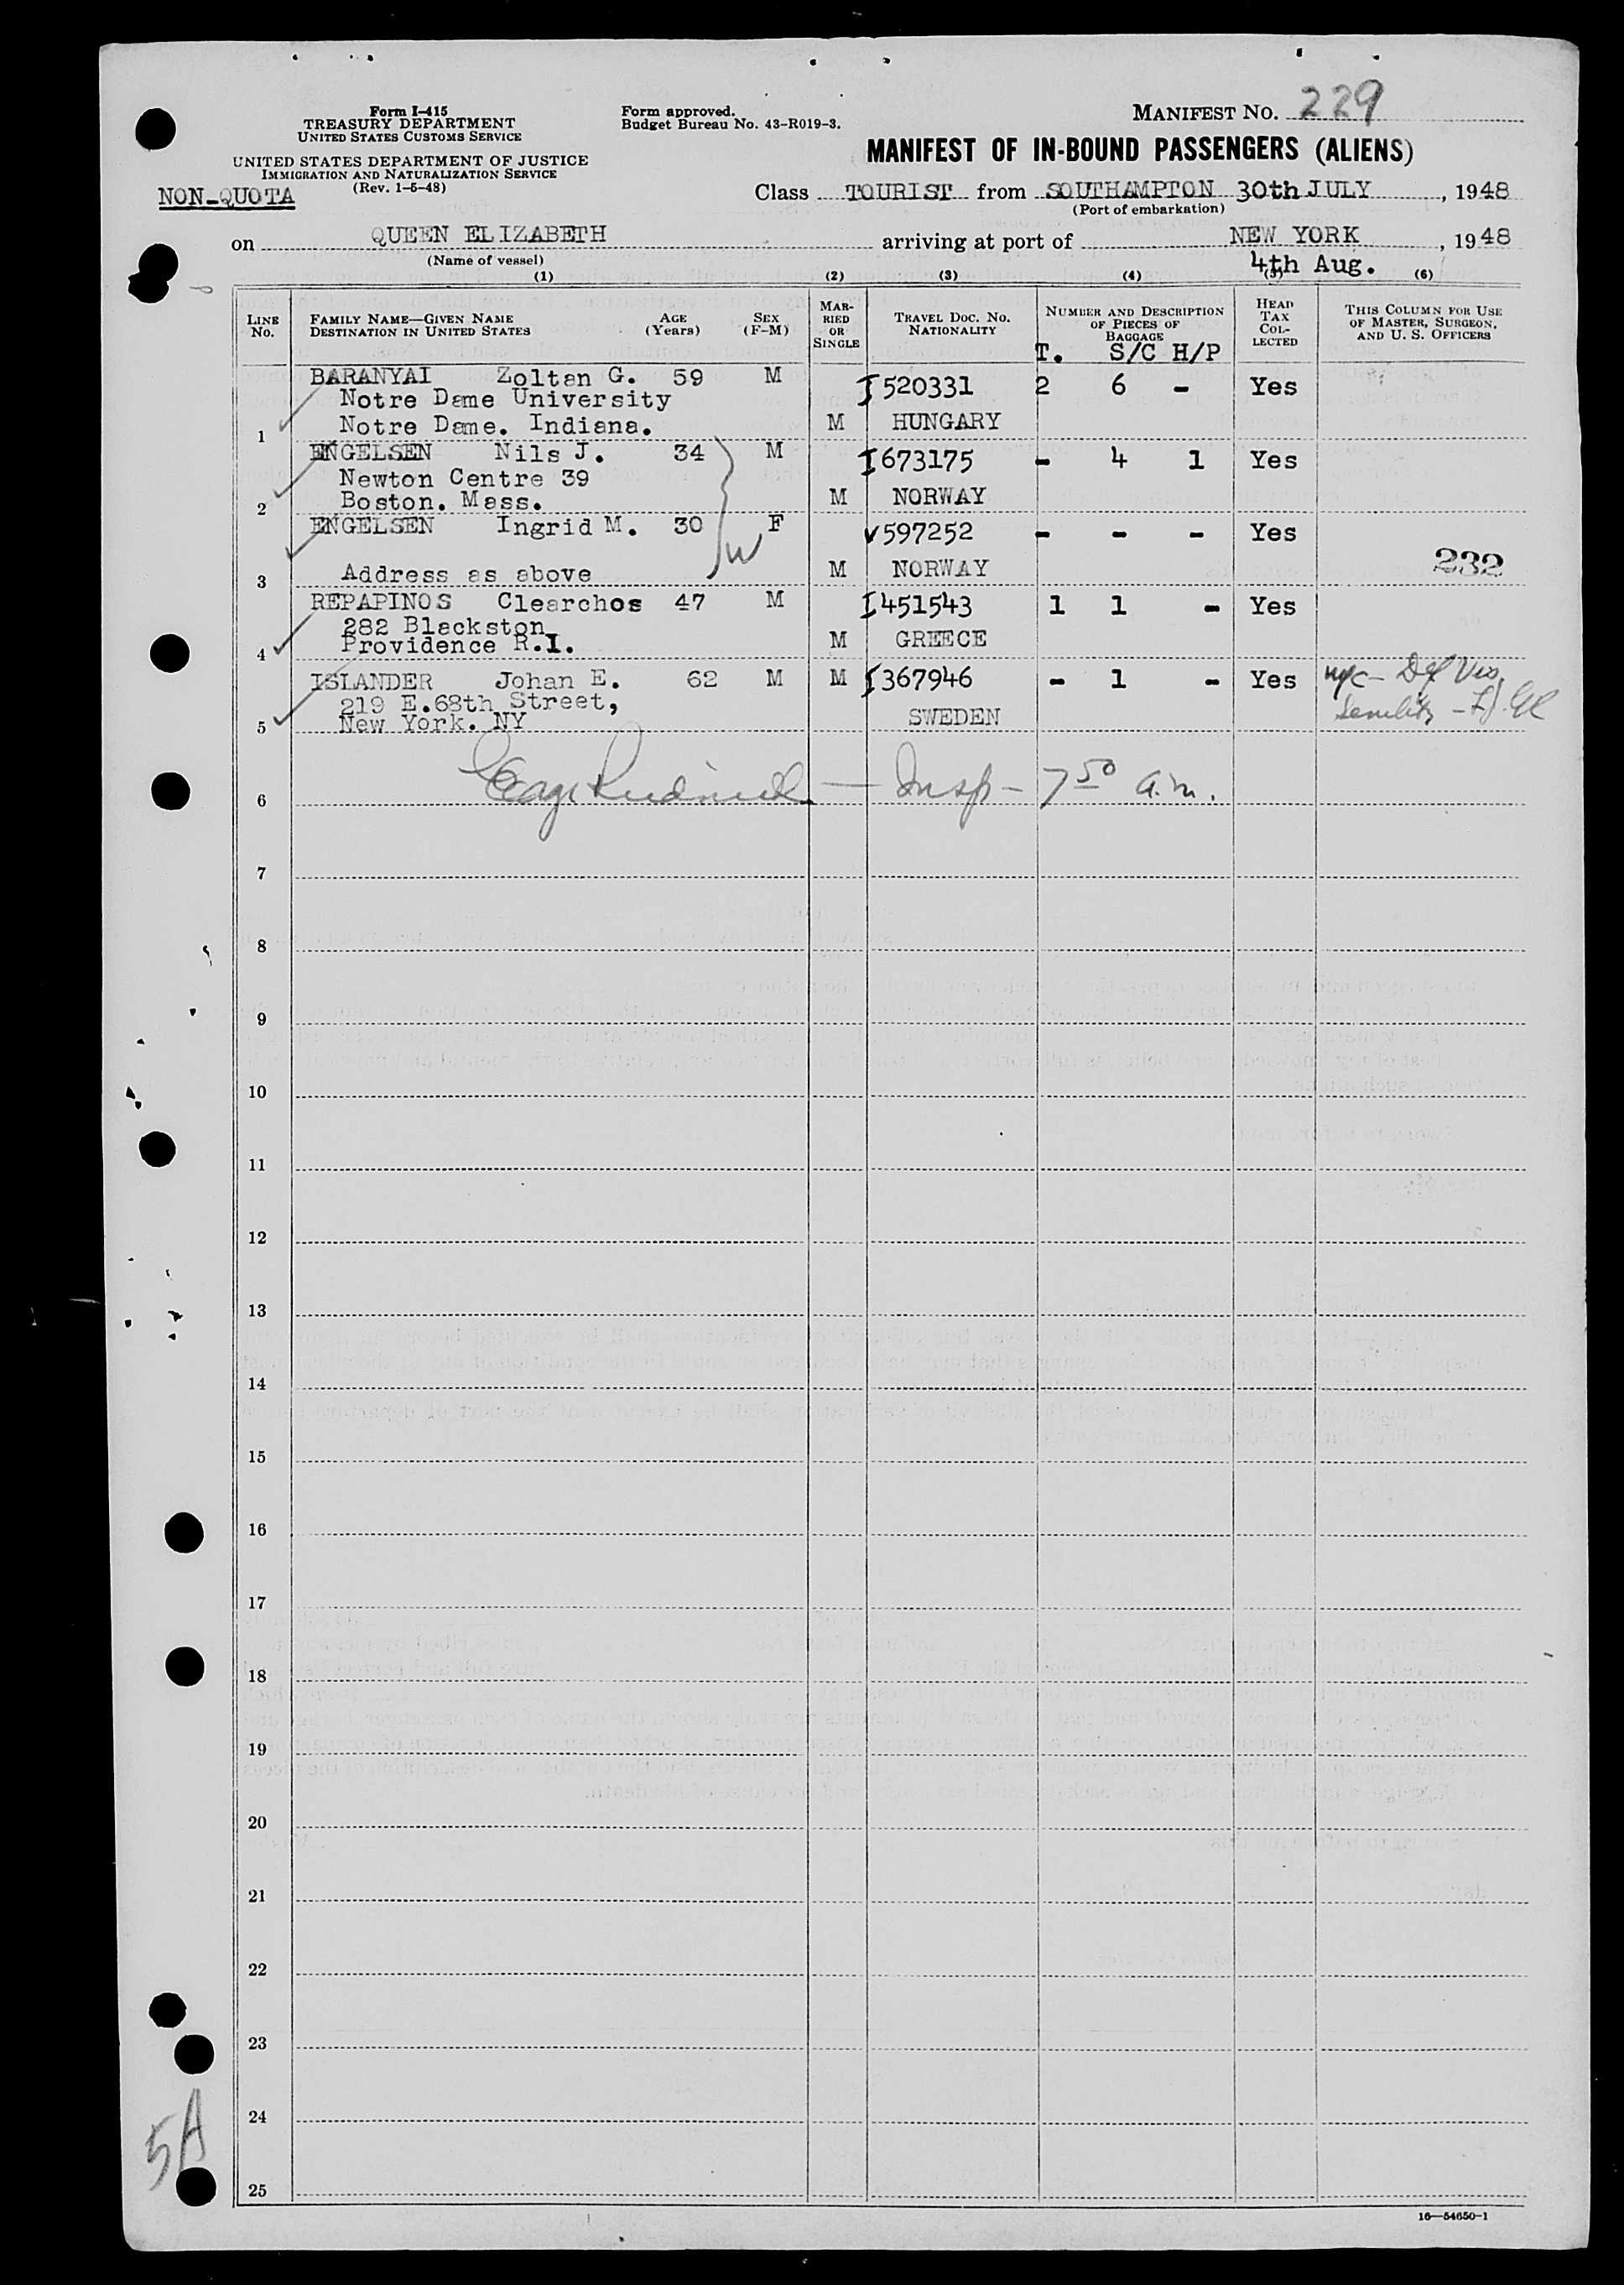 Form I-415
TREASURY DEPARTMENT
UNITED STATES CUSTOMS SERVICE
UNITED STATES DEPARTMENT OF JUSTICE
IMMIGRATION AND NATURALIZATION SERVICE
(Rev. 1-5-48)
NON-QUOTA
Form approved.
Budget Bureau No. 43-R019-3.
MANIFEST No. 229
MANIFEST OF IN-BOUND PASSENGERS (ALIENS)
Class TOURIST from SOUTHAMPTON 30th JULY, 1948
(Port of embarkation)
on QUEEN ELIZABETH arriving at port of NEW YORK, 1948
(Name of vessel) 4th Aug.
(1) (2) (3) (4) (5) (6)
LINE No. FAMILY NAME—GIVEN NAME DESTINATION IN UNITED STATES AGE (Years) SEX (F-M) MARRIED OR SINGLE TRAVEL DOC. No. NATIONALITY NUMBER AND DESCRIPTION OF PIECES OF BAGGAGE HEAD TAX COLLECTED THIS COLUMN FOR USE OF MASTER, SURGEON, AND U. S. OFFICERS
T. S/C H/P
BARANYAI Zoltan G. 59 M I 520331 2 6 - Yes
Notre Dame University
1 Notre Dame. Indiana. M HUNGARY
ENGELSEN Nils J. 34 M I 673175 - 4 1 Yes
Newton Centre 39
2 Boston. Mass. M NORWAY
ENGELSEN Ingrid M. 30 F V 597252 - - - Yes
W
232
3 Address as above M NORWAY
REPAPINOS Clearchos 47 M I 451543 1 1 - Yes
282 Blackston
4 Providence R.I. M GREECE
ISLANDER Johan E. 62 M M I 367946 - 1 - Yes
Def Vis,
219 E.68th Street,
Senility
5 New York. NY SWEDEN
6 Insp - 7 50 a.m.
7
8
9
10
11
12
13
14
15
16
17
18
19
20
21
22
23
24
25
5A
16—54650-1